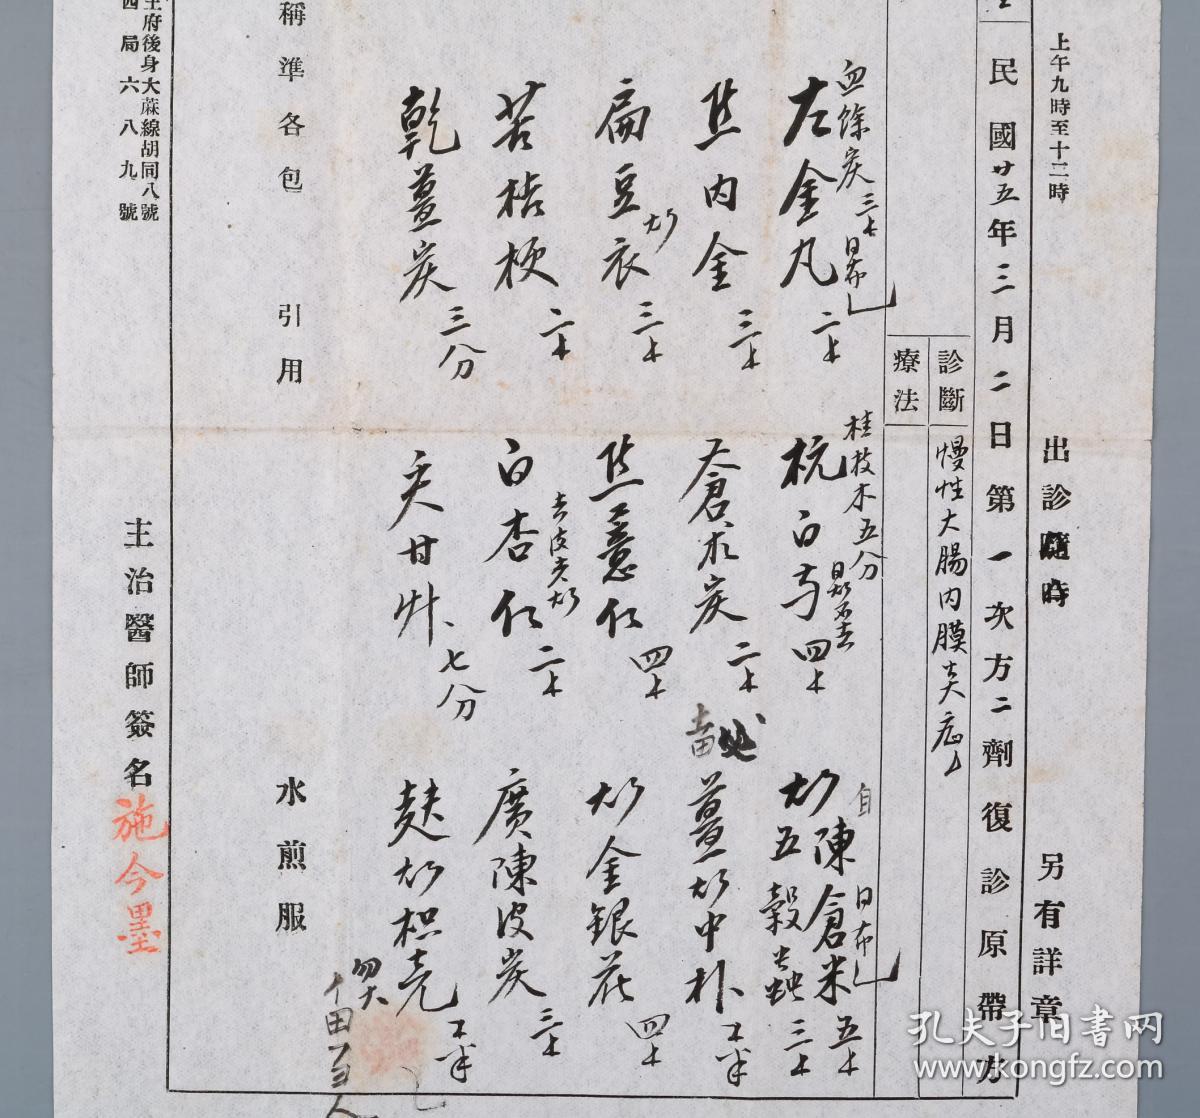 上午九時至十二時
出診隨時
另有詳章
民國廿五年三月二日第一次方二劑復診原帶方
診斷
慢性大腸内膜炎症
療法
血餘炭三才
左金丸二才
日布包
焦内金三才
扁豆衣三才
炒
苦桔梗二才
乾薑炭三分
桂枝木五分
杭白芍四才
蒼朮炭二才
焦薏仁四才
白杏仁二才
去皮尖炒
炙甘艸七分
自
炒陳倉米五才
炒五穀蟲三才
日布包
薑炒中朴
炒金銀花四才
廣陳皮炭三才
麸炒枳壳
稱準各包
引用
水煎服
主治醫師簽名
施今墨
王府後身大蔴線胡同八號
四局六八九號
孔夫子旧书网
www.kongfz.com